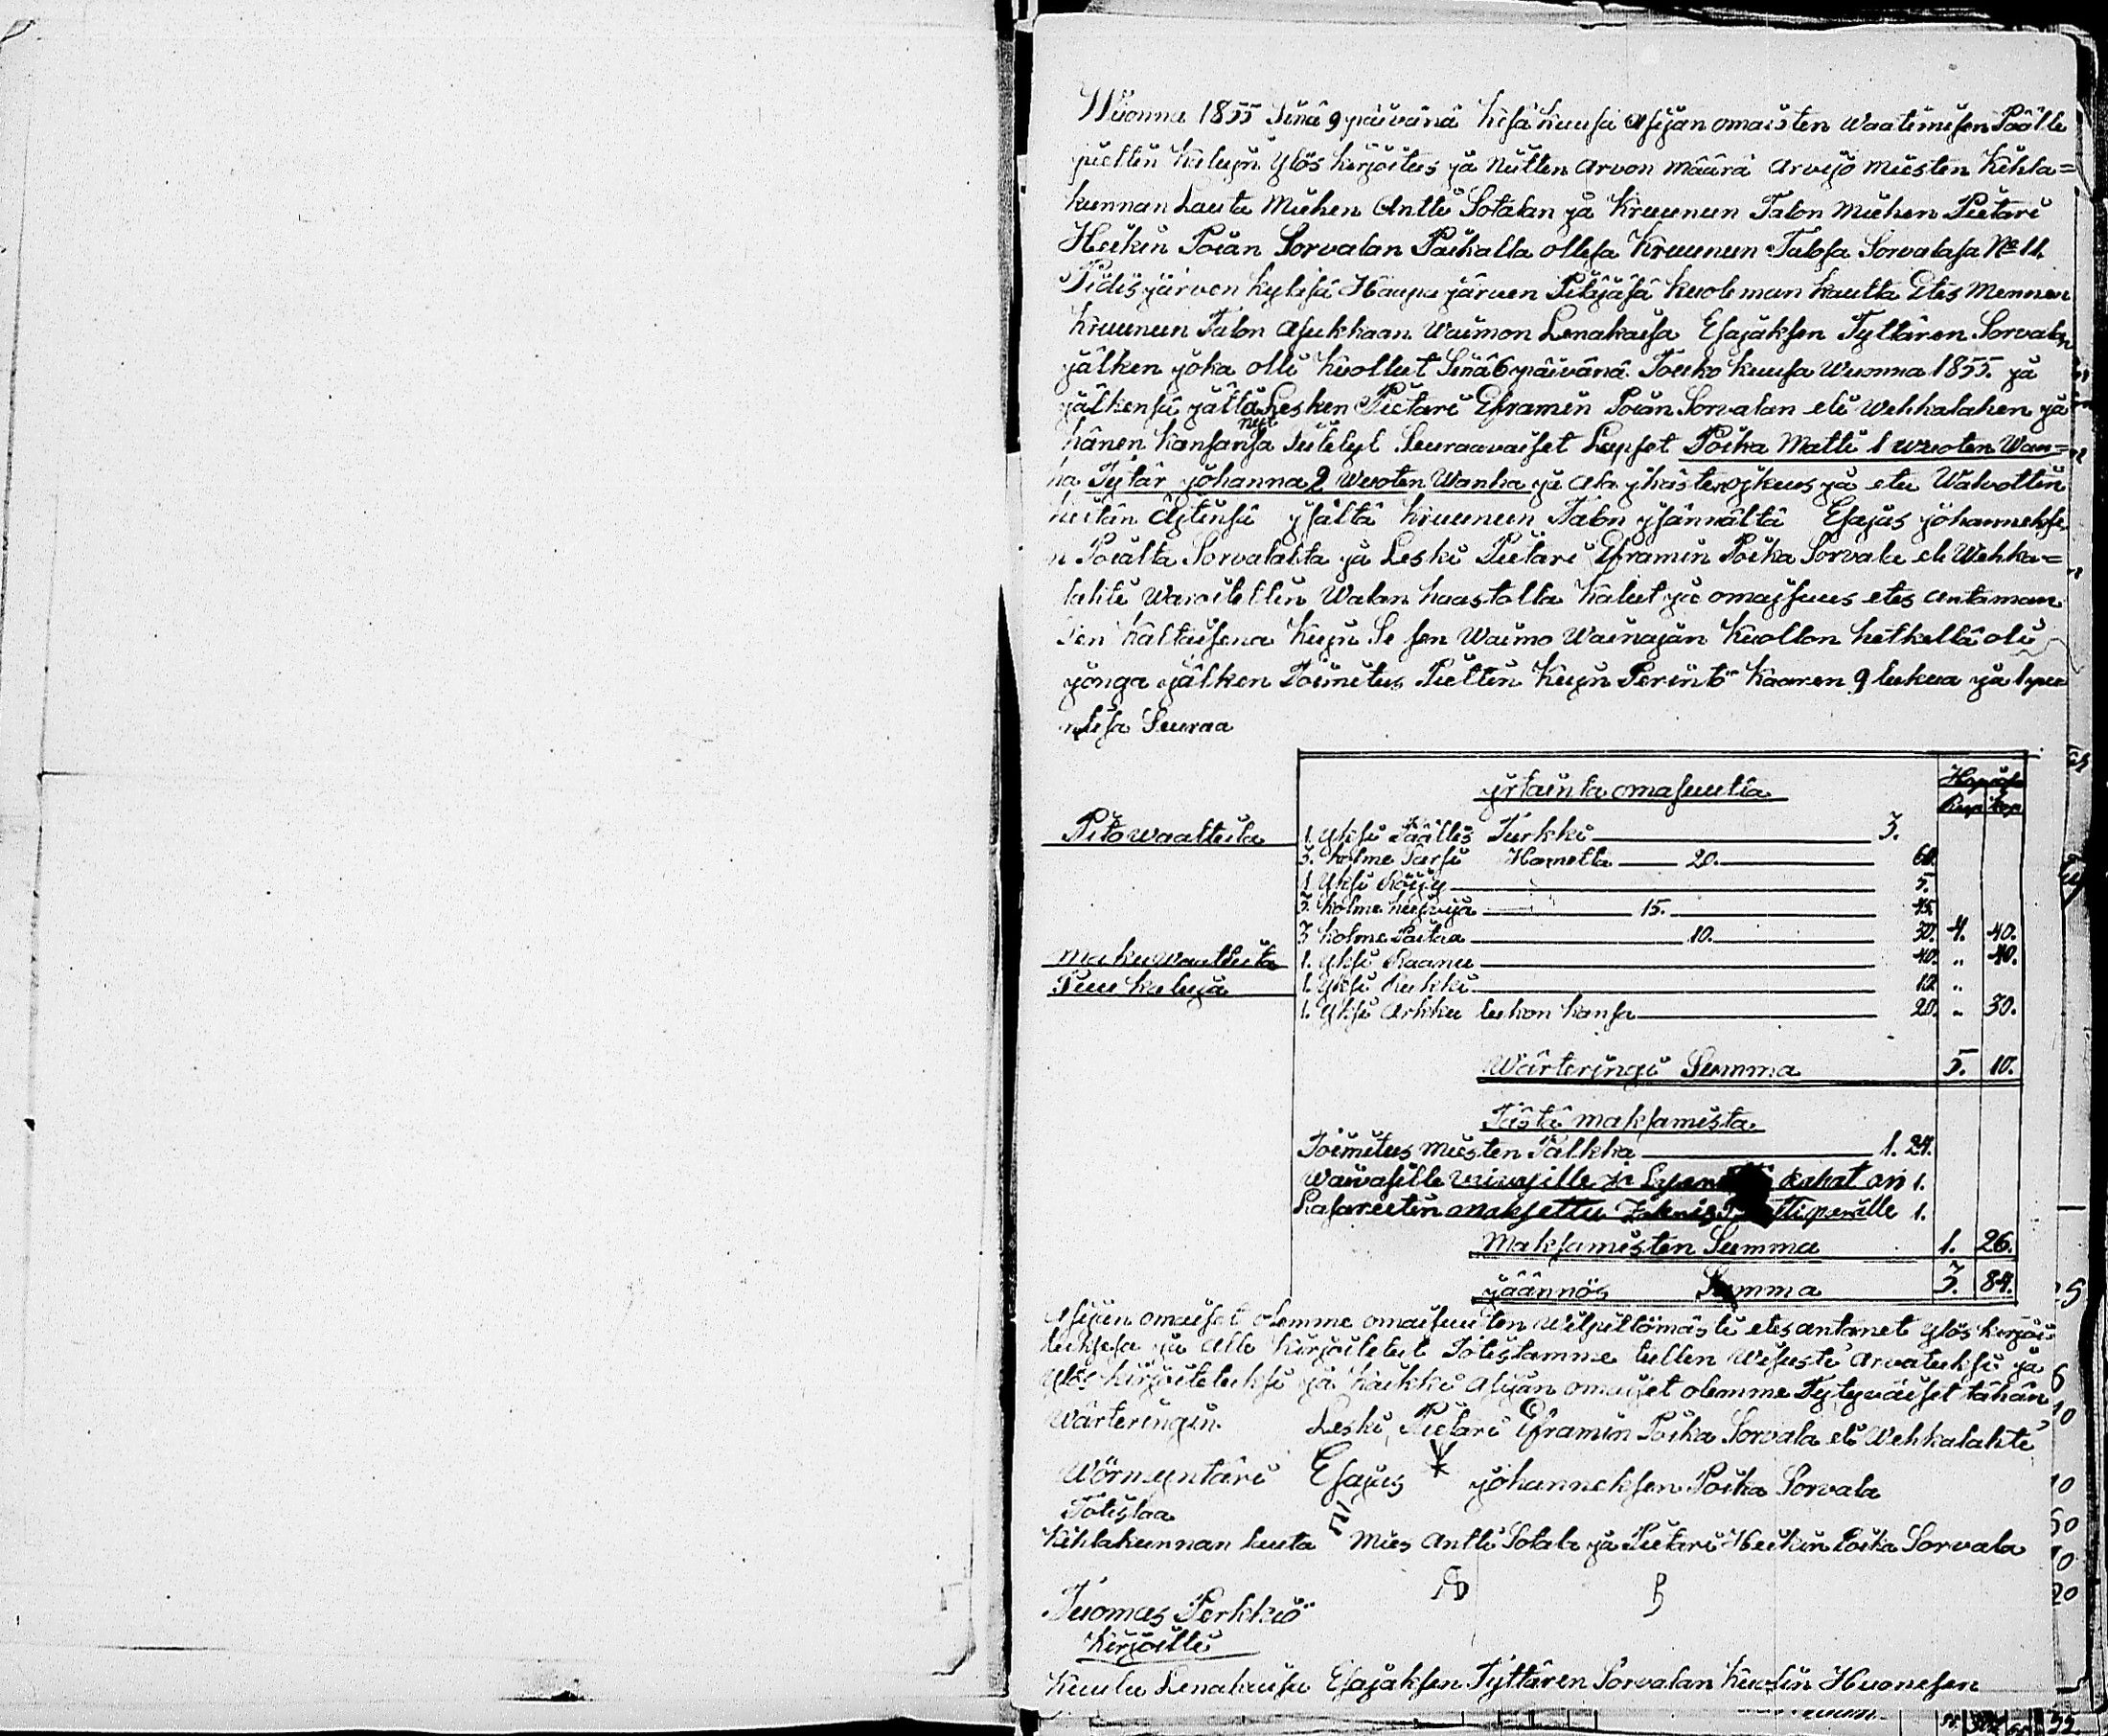 Wuonna 1855 Sinä 9 päivänä kesä kuusa Asijan omaisten Waatimisen Päälle
piettin kalujn ylös kirjoitus ja niitten arvon määrä arvijo miesten kihla=
kunnan Lauta miehen Antti Sotalan ja kruunun Talon miehen Pietari
Heikin Poian Sorvalan Paikalla ollesa kruunun Talosa Sorvalasa No 11.
Pidisjärven kyläsä Haapajärven Pitäjäsä kuoleman kautta Etes mennen
kruunun Talon Asukkaan Waimon Lenakaisa Esajaksen Tyttären Sorvalan
jälken joka olli kuollut Sinä 6 päivänä Touko kuusa Wuonna 1855. ja
jälkensä jättä Lesken Pietari Eframin Poian Sorvalan eli Wehkalahen ja
hänen kansansa nyt Siitetyt Seuraavaiset Lapset Poika Matti 1 wuoten Wan=
ha Tytär johanna 2 Wuoten Wanha ja ala ikästen ojkeus ja etu Walvottin
heitän Äjtinsä jsältä kruunun Talon jsännältä Esajas johannekse
n Poialta Sorvalalta ja Leski Pietari Eframin Poika Sorvala eli Wehka=
lahti Waroitettin Walan haastolla kalut ja omajsuus etes antaman
Sen kaltaisena kujn Se sen Waimo Wainajan kuollon hetkellä oli
jonga jälken Toimitus Piettin kujn Perintö kaaren 9 lukua ja 1
Seuraa
jrtainta omasuutia
Hopiasa
Rup kop
Pito waatteita
1. yksi Päälis Turkki 3.
3. kolme Parsi Hametta 20. 60.
1 yksi Röijy 5.
3. kolme huivija 15. 45
3 kolme Paitaa 10. 30. 4. 40.
maku waatteita
1. yksi Raanu 40. „ 40.
Puu kaluja
1. yksi Rukki 10 „
1. yksi Arkku lukon kansa 20. „ 30.
Wärteringi Summa 5. 10.
Tästä maksamista
Toimitus miesten Palkka 1. 24.
Waivasille kahat on 1.
Lasareetin maksettu 1.
Maksamisten Summa 1. 26.
jäännös Summa 3. 84.
Asijan omaiset olemme omaisuuten Wilpittömästi etes antanet ylös kirjoi
tuksesa ja alle kirjoitetut Totistamme tullen Wisusti Arvatuksi ja
ylös kirjoitetuksi ja kaikki Asijan omaiset olemme Tytyväiset tähän
Wärteringin. Leski Pietari Eframin Poika Sorvala eli Wehkalahti
Wörmyntäri Esajas johanneksen Poika Sorvala
Totistaa
Kihlakunnan lauta Mies Antti Sotala ja Pietari Heikin Poika Sorvala
Tuomas Perkkiö
kirjoitti
Kuulu Lenakaisa Esajaksen Tyttären Sorvalan kuolin Huonesen